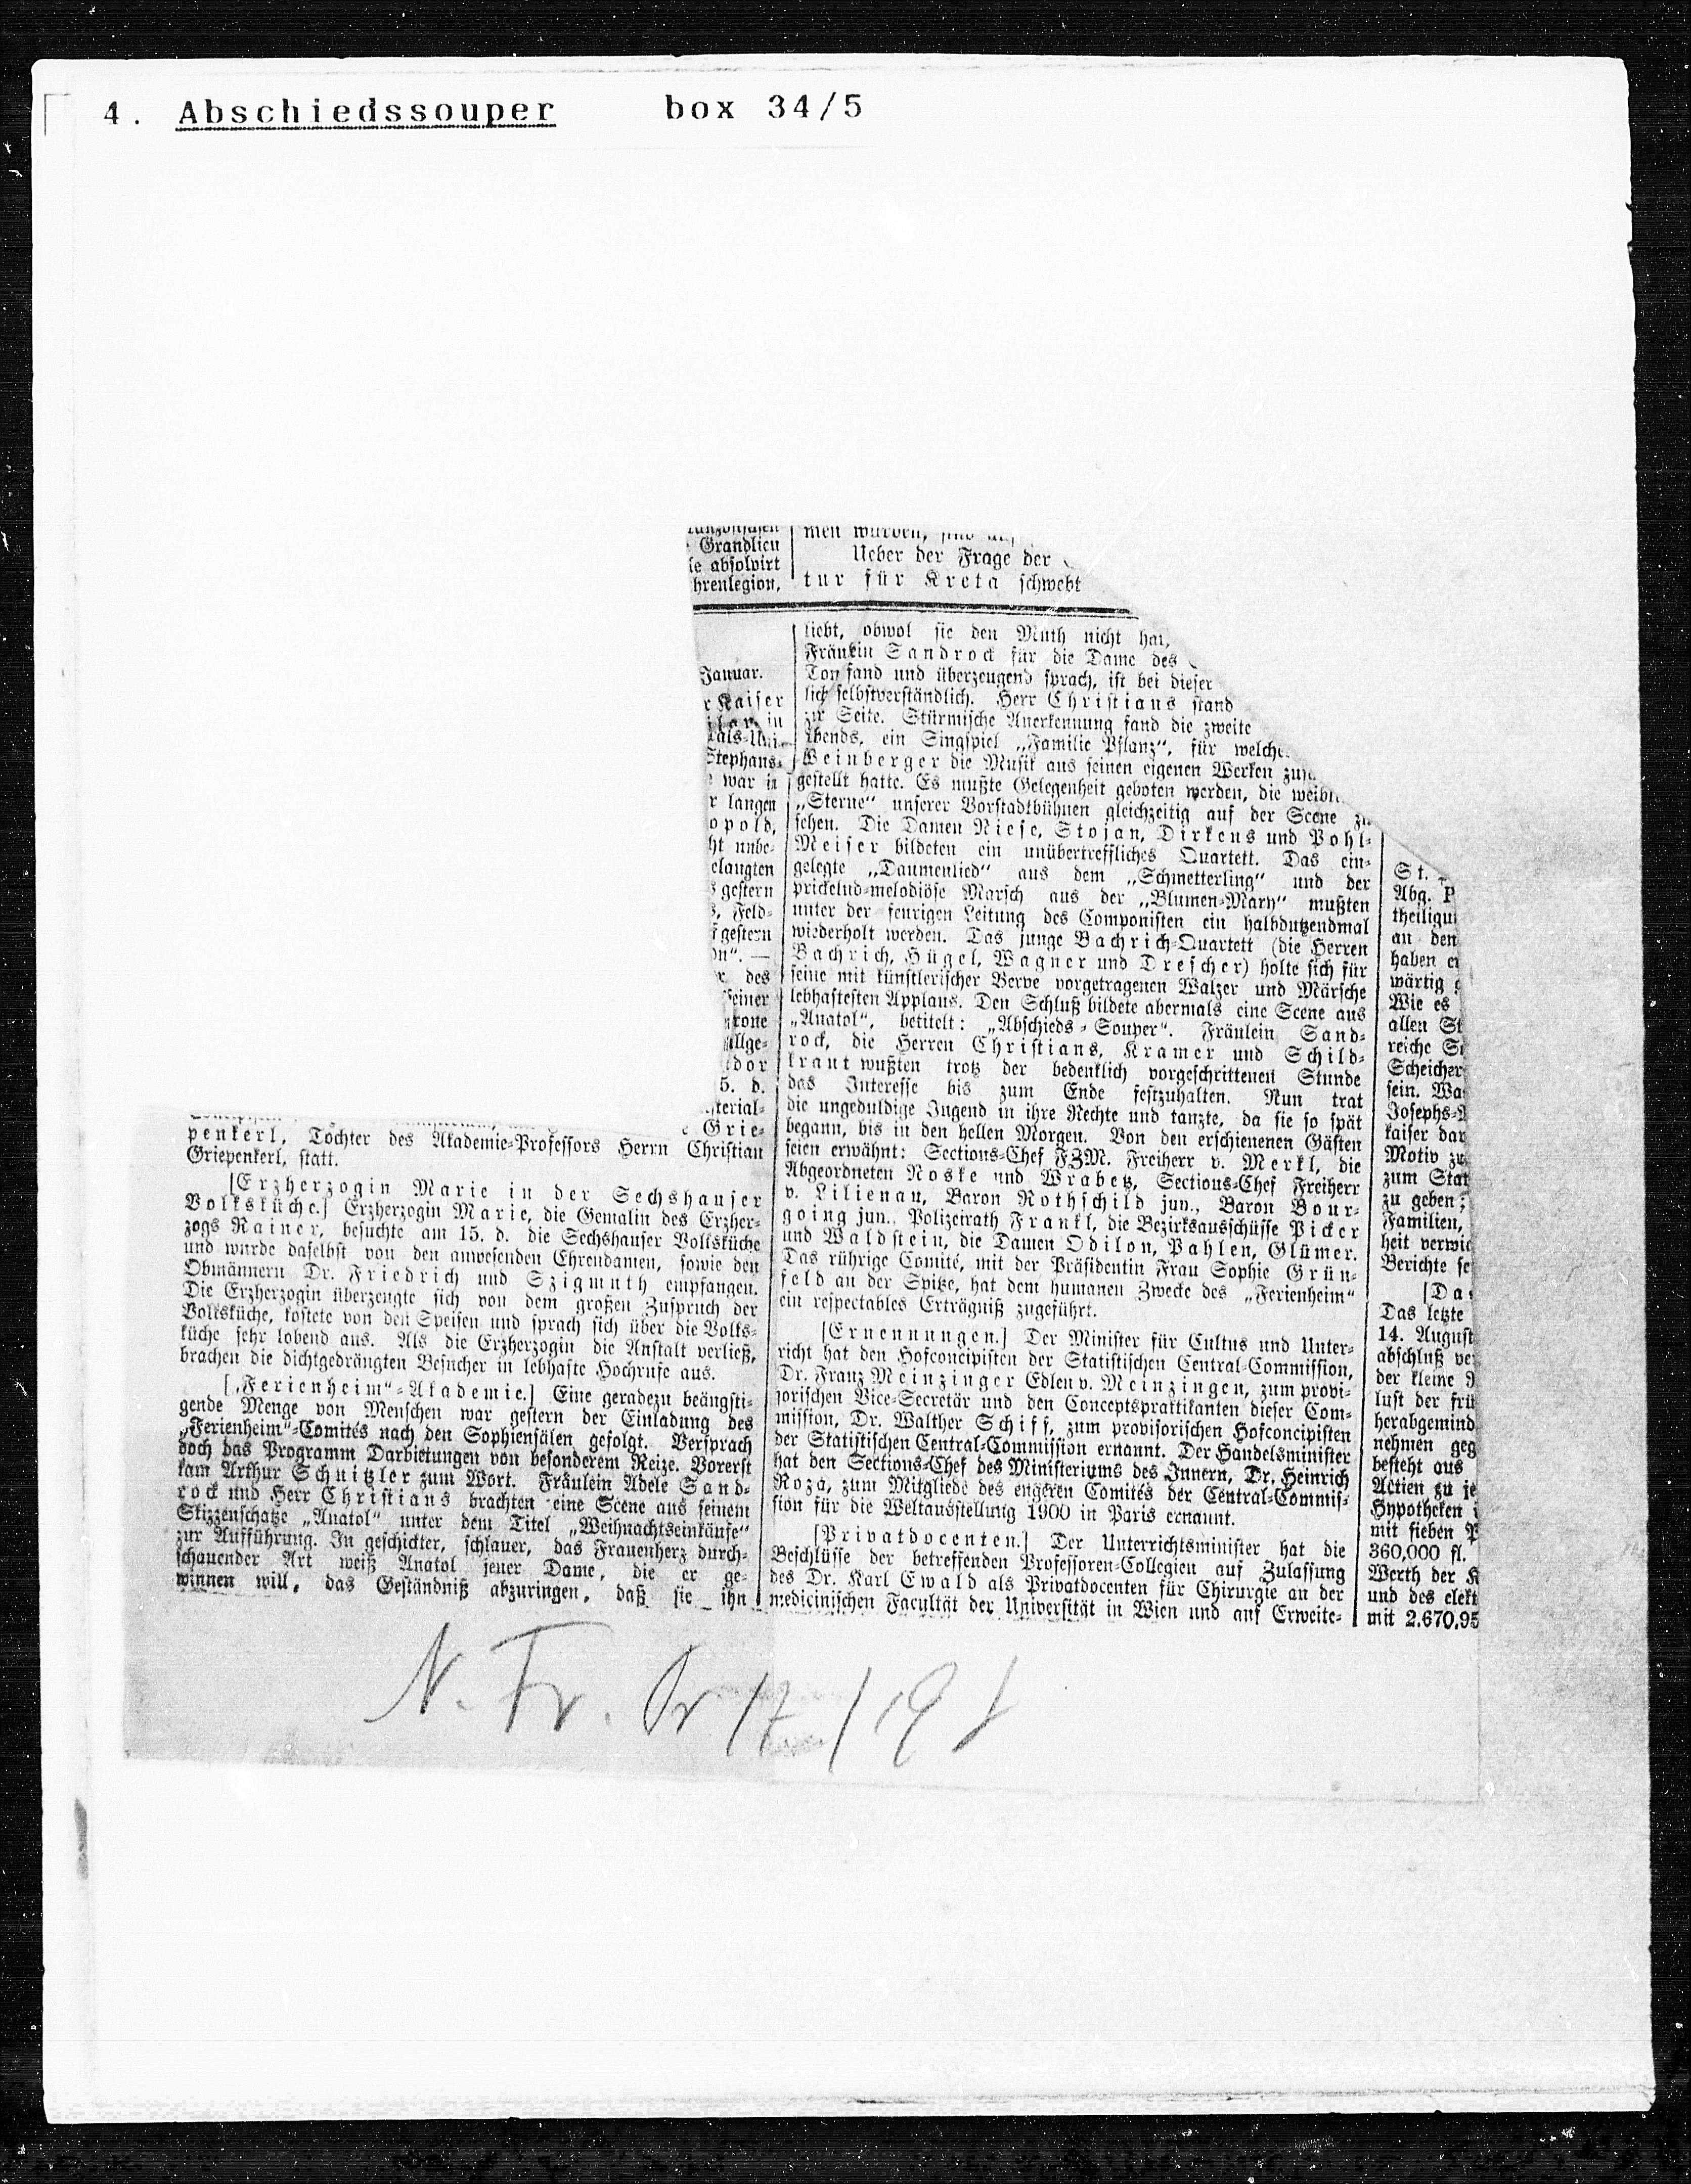 4. Abschiedssouper box 34/5
Grandlieu
ie absolvirt
hrenlegion,
Januar.
r Kaiser
in
Stephans-
war in
r langen
opold,
ht unbe-
elangten
gestern
Feld-
gestern
on“. —
des
seiner
krone
allge-
dor
5. d.
sterial-
Grie-
penkerl, Tochter des Akademie-Professors Herrn Christian
Griepenkerl, statt.
[Erzherzogin Marie in der Sechshauser
Volksküche.] Erzherzogin Marie, die Gemalin des Erzher-
zogs Rainer, besuchte am 15. d. die Sechshauser Volksküche
und wurde daselbst von den anwesenden Ehrendamen, sowie den
Obmännern Dr. Friedrich und Szigmuth empfangen.
Die Erzherzogin überzeugte sich von dem großen Zuspruch der
Volksküche, kostete von den Speisen und sprach sich über die Volks-
küche sehr lobend aus. Als die Erzherzogin die Anstalt verließ,
brachen die dichtgedrängten Besucher in lebhafte Hochrufe aus.
[„Ferienheim“-Akademie.] Eine geradezu beängsti-
gende Menge von Menschen war gestern der Einladung des
„Ferienheim“-Comités nach den Sophiensälen gefolgt. Versprach
doch das Programm Darbietungen von besonderem Reize. Vorerst
kam Arthur Schnitzler zum Wort. Fräulein Adele Sand-
rock und Herr Christians brachten eine Scene aus seinem
Skizzenschatze „Anatol“ unter dem Titel „Weihnachtseinkäufe“
zur Aufführung. In geschickter, schlauer, das Frauenherz durch-
schauender Art weiß Anatol jener Dame, die er ge-
winnen will, das Geständniß abzuringen, daß sie ihn
men wurden, sind
Ueber der Frage der
tur für Kreta schwebt
liebt, obwol sie den Muth nicht hat,
Fräulein Sandrock für die Dame des
Ton fand und überzeugend sprach, ist bei dieser
lich selbstverständlich. Herr Christians stand
zur Seite. Stürmische Anerkennung fand die zweite
Abends, ein Singspiel „Familie Pflanz“, für welche
Weinberger die Musik aus seinen eigenen Werken
gestellt hatte. Es mußte Gelegenheit geboten werden, die
„Sterne“ unserer Vorstadtbühnen gleichzeitig auf der Scene zu
sehen. Die Damen Niese, Stojan, Dirkens und Pohl-
Meiser bildeten ein unübertreffliches Quartett. Das ein-
gelegte „Daumenlied“ aus dem „Schmetterling“ und der
prickelnd-melodiöse Marsch aus der „Blumen-Mary“ mußten
unter der feurigen Leitung des Componisten ein halbdutzendmal
wiederholt werden. Das junge Bachrich-Quartett (die Herren
Bachrich, Hügel, Wagner und Drescher) holte sich für
seine mit künstlerischer Verve vorgetragenen Walzer und Märsche
lebhaftesten Applaus. Den Schluß bildete abermals eine Scene aus
„Anatol“, betitelt: „Abschieds-Souper“. Fräulein Sand-
rock, die Herren Christians, Kramer und Schild-
kraut wußten trotz der bedenklich vorgeschrittenen Stunde
das Interesse bis zum Ende festzuhalten. Nun trat
die ungeduldige Jugend in ihre Rechte und tanzte, da sie so spät
begann, bis in den hellen Morgen. Von den erschienenen Gästen
seien erwähnt: Sections-Chef FZM. Freiherr v. Merkl, die
Abgeordneten Noske und Wrabetz, Sections-Chef Freiherr
v. Lilienau, Baron Rothschild jun., Baron Bour-
going jun., Polizeirath Frankl, die Bezirksausschüsse Picker
und Waldstein, die Damen Odilon, Pahlen, Glümer.
Das rührige Comité, mit der Präsidentin Frau Sophie Grün-
feld an der Spitze, hat dem humanen Zwecke des „Ferienheim“
ein respectables Erträgniß zugeführt.
[Ernennungen.] Der Minister für Cultus und Unter-
richt hat den Hofconcipisten der Statistischen Central-Commission,
Dr. Franz Meinzinger Edlen v. Meinzingen, zum provi-
sorischen Vice-Secretär und den Conceptspraktikanten dieser Com-
mission, Dr. Walther Schiff, zum provisorischen Hofconcipisten
der Statistischen Central-Commission ernannt. Der Handelsminister
hat den Sections-Chef des Ministeriums des Innern, Dr. Heinrich
Roza, zum Mitgliede des engeren Comités der Central-Commis-
sion für die Weltausstellung 1900 in Paris ernannt.
[Privatdocenten.] Der Unterrichtsminister hat die
Beschlüsse der betreffenden Professoren-Collegien auf Zulassung
des Dr. Karl Ewald als Privatdocenten für Chirurgie an der
medicinischen Facultät der Universität in Wien und auf Erweite-
St.
Abg. P
theiligu
an den
haben e
wärtig
Wie es
allen St
reiche S
Scheicher
sein. Wa
Josephs-
kaiser dar
Motiv zu
zum Stat
zu geben;
Familien,
heit verwic
Berichte se
[Da
Das letzte
14. August
abschluß ve
der kleine
lust der frü
herabgemind
nehmen geg
besteht aus
Actien zu je
Hypotheken
mit sieben P
360,000 fl.
Werth der K
und des elekt
mit 2.670,95
N. Fr. Pr 17/1 98